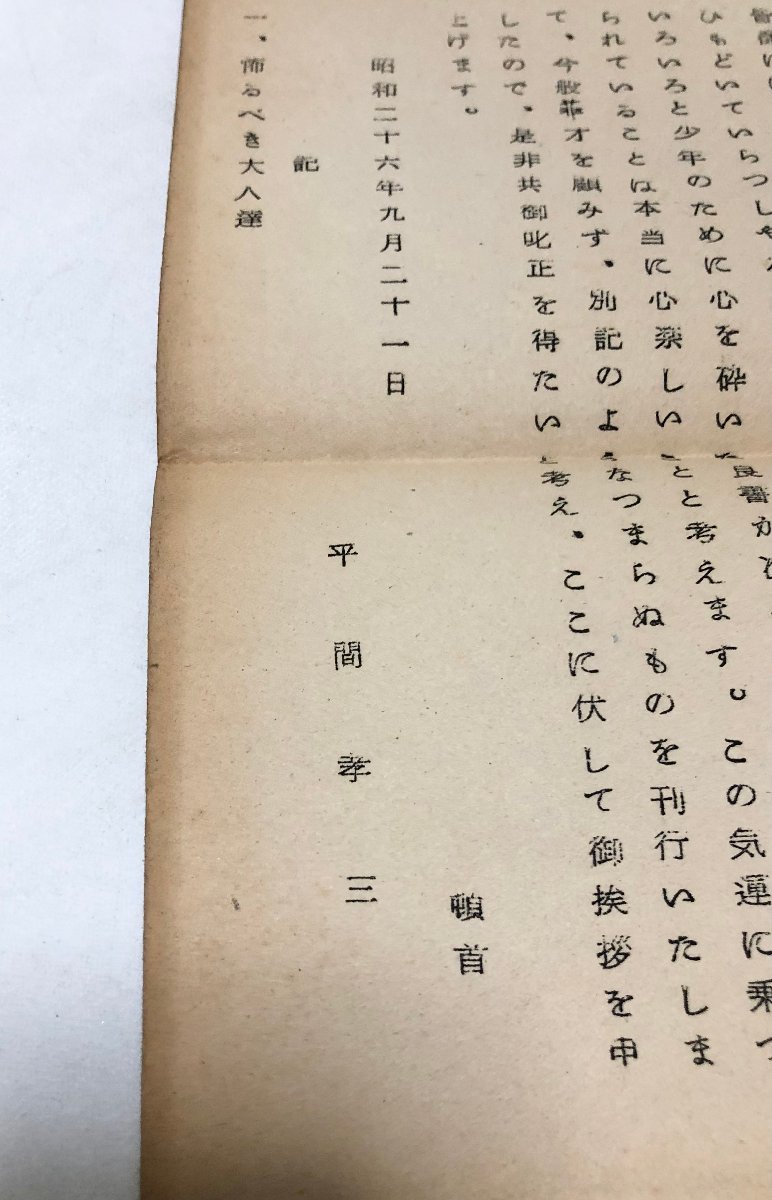 ひもどいていらつしや
いろいろと少年のために心を砕いた良書が
られていることは本当に心楽しいことと考えます。この気運に乗つ
て、今般菲才を顧みず、別記のようなつまらぬものを刊行いたしま
したので、是非共御叱正を得たいと考え、ここに伏して御挨拶を申
上げます。
頓首
昭和二十六年九月二十一日
平間孝三
記
一、怖るべき大人達